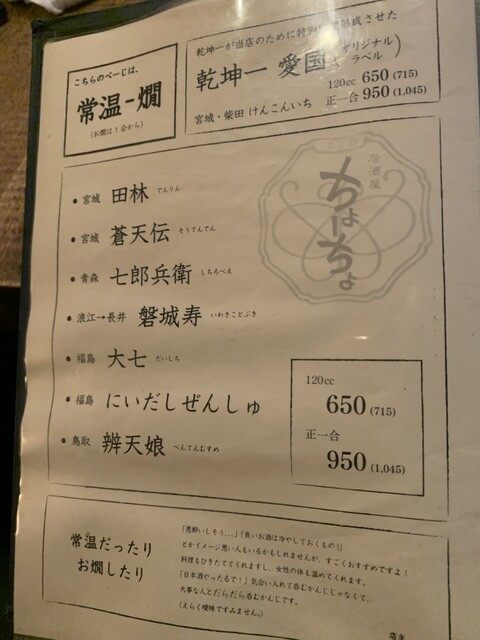 こちらのぺーじは、
常温-燗
(お燗は1合から)
乾坤一が当店のために特別に熟成させた
乾坤一 愛国(オリジナルラベル)
宮城・柴田 けんこんいち
120cc 650(715)
正一合 950(1,045)
居酒屋
ちょーちょ
・宮城 田林 でんりん
・宮城 蒼天伝 そうてんでん
・青森 七郎兵衛 しちろべえ
・浪江→長井 磐城寿 いわきことぶき
・福島 大七 だいしち
・福島 にいだしぜんしゅ
・鳥取 辨天娘 べんてんむすめ
120cc
650(715)
正一合
950(1,045)
常温だったり
お燗したり
「悪酔いしそう...」「良いお酒は冷やしておくもの!」
とかイメージ悪い人もいるかもしれませんが、すごくおすすめですよ!
料理もひきたててくれますし、女性の体も温めてくれます。
「日本酒やったるで!」気合い入れて呑むかんじじゃなくて、
大事な人とだらだら呑むかんじです。
(えらく曖昧ですみません。)
店主